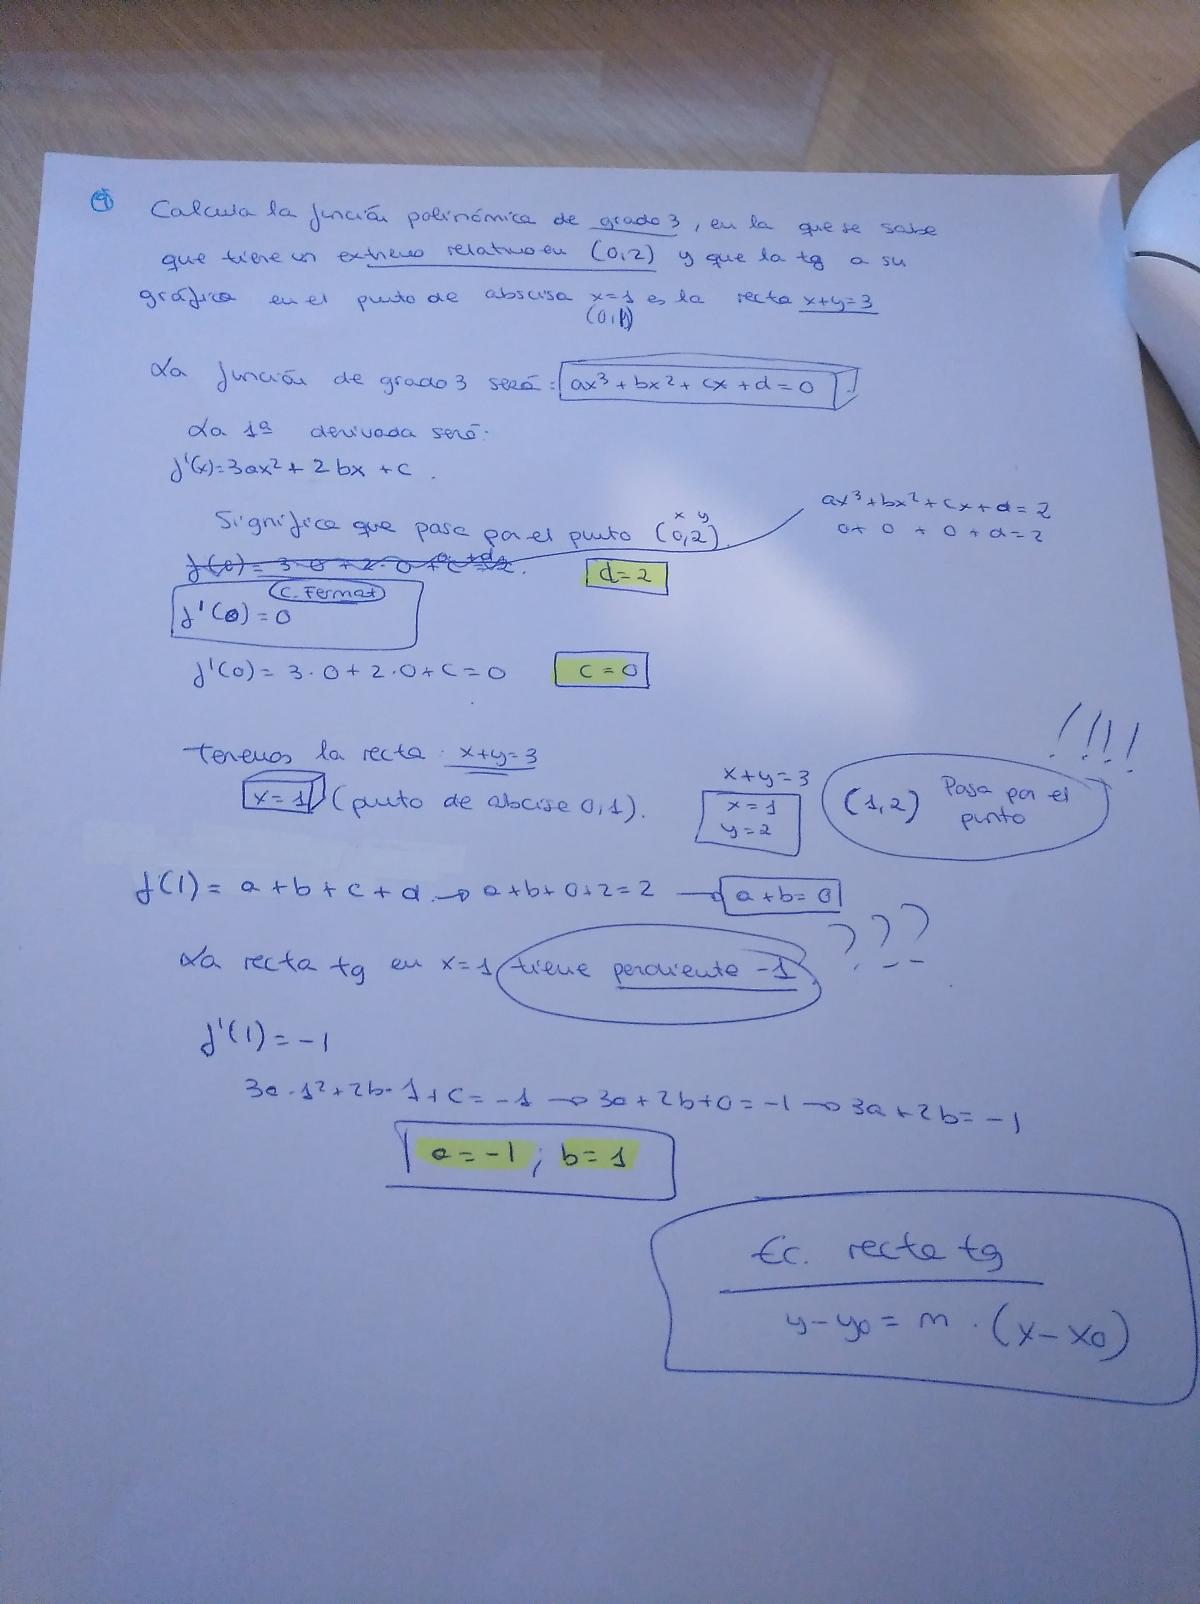 Calcula la función polinómica de grado 3, en la que se sabe
que tiene un extremo relativo en (0,2) y que la tg a su
gráfica en el punto de abscisa x=1 es la recta x+y=3
La función de grado 3 será: ax³+bx²+cx+d=0
La 1ª derivada será:
f'(x)=3ax²+2bx+c.
ax³+bx²+cx+d=2
0+0+0+d=2
x y
Significa que pasa por el punto (0,2).
d=2
C. Fermat
f'(0)=0
f'(0)=3·0+2·0+c=0 c=0
Tenemos la recta: x+y=3
x=1 (punto de abcise 0,1).
x+y=3
x=1
y=2
(1,2) Pasa por el
punto
!!!!
f(1)=a+b+c+d→a+b+0+2=2→a+b=0
La recta tg en x=1 tiene pendiente -1 ???
f'(1)=-1
3a·1²+2b·1+c=-1→3a+2b+0=-1→3a+2b=-1
a=-1; b=1
Ec. recta tg
y-y₀=m·(x-x₀)